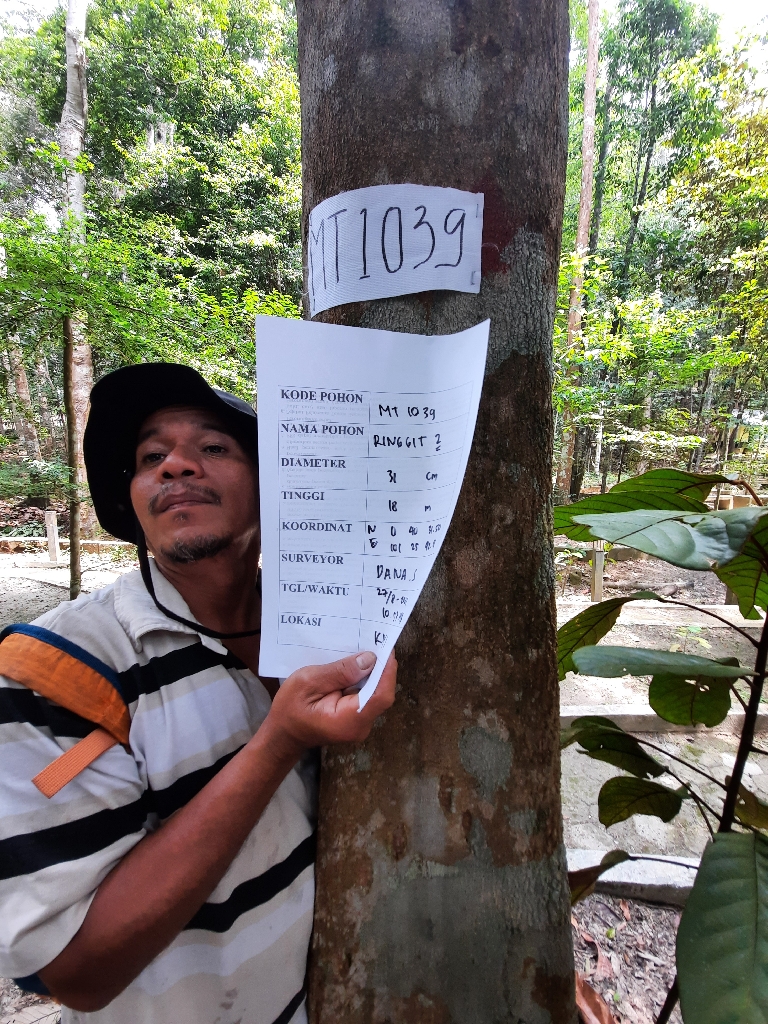 MT 1039
KODE POHON MT 1039
NAMA POHON RINGGIT 2
DIAMETER 31 cm
TINGGI 18 m
KOORDINAT N 0 40
E 101 25
SURVEYOR DANA S
TGL/WAKTU 27/8
10
LOKASI